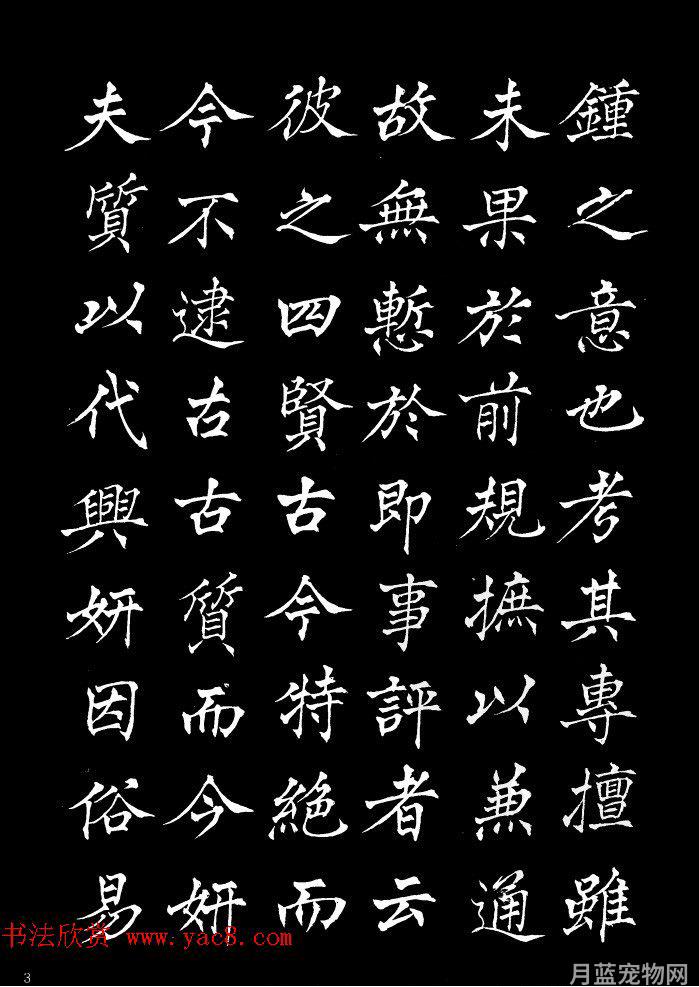 鍾之意也考其專擅雖
未果於前規摭以兼通
故無慙於即事評者云
彼之四賢古今特絕而
今不逮古古質而今妍
夫質以代興妍因俗易
书法欣赏 www.yac8.com
3
月蓝宠物网